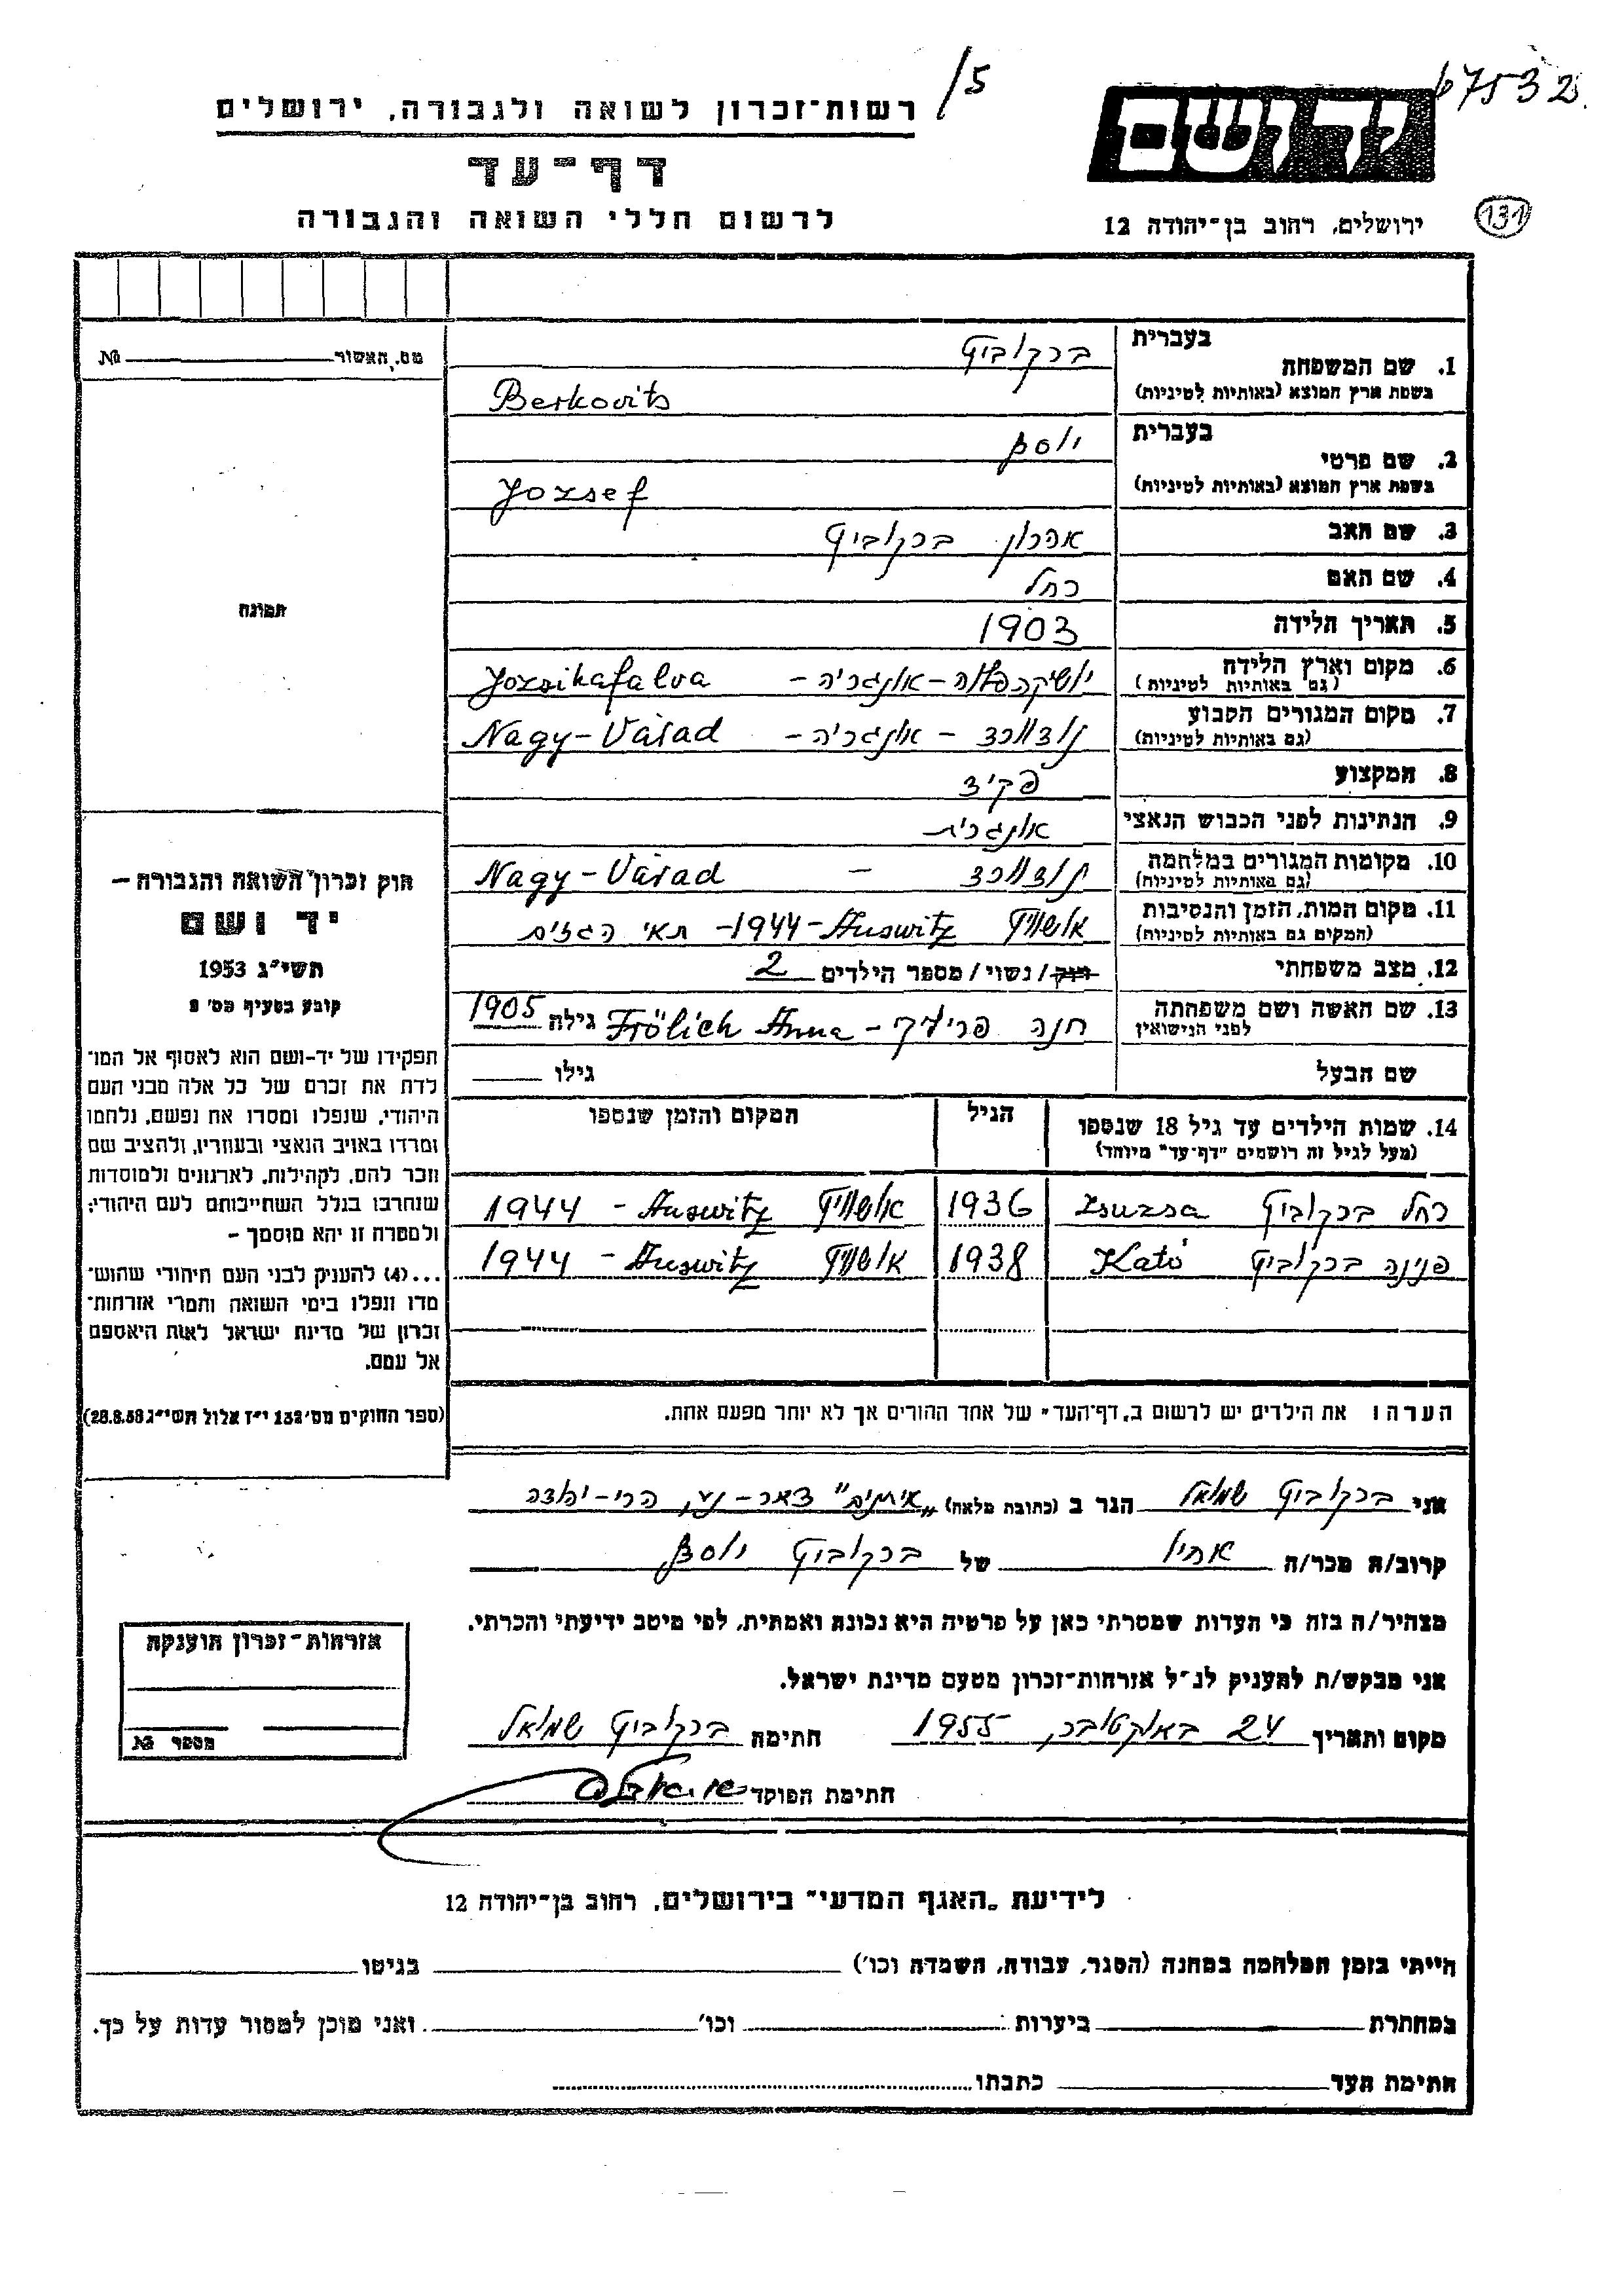 67532
/5
רשות־זכרון לשואה ולגבורה, ירושלים
דף־עד
לרשום חללי השואה והגבורה
יד ושם
ירושלים, רחוב בן־יהודה 12
131
מס. האשור № 
תמונה
חוק זכרון השואה והגבורה —
יד ושם
תשי״ג 1953
קובע בסעיף מס׳ 2
תפקידו של יד-ושם הוא לאסוף אל המו־
לדת את זכרם של כל אלה מבני העם
היהודי, שנפלו ומסרו את נפשם, נלחמו
ומרדו באויב הנאצי ובעוזריו, ולהציב שם
וזכר להם, לקהילות, לארגונים ולמוסדות
שנחרבו בגלל השתייכותם לעם היהודי;
ולמטרה זו יהא מוסמך —
...(4) להעניק לבני העם היהודי שהוש־
מדו ונפלו בימי השואה והמרי אזרחות־
זכרון של מדינת ישראל לאות היאספם
אל עמם.
(ספר החוקים מס׳ 132 י״ז אלול תשי״ג 28.8.53)
1. שם המשפחה בעברית ברקוביץ
בשפת ארץ המוצא (באותיות לטיניות) Berkovits
2. שם פרטי בעברית יוסף
בשפת ארץ המוצא (באותיות לטיניות) Jozsef
3. שם האב אהרון ברקוביץ
4. שם האם רחל
5. תאריך הלידה 1903
6. מקום וארץ הלידה (גם באותיות לטיניות) – אונגריה – Jozsikafalva
7. מקום המגורים הקבוע (גם באותיות לטיניות) – אונגריה – Nagy-Várad
8. המקצוע פקיד
9. הנתינות לפני הכבוש הנאצי אונגרית
10. מקומות המגורים במלחמה (גם באותיות לטיניות) – Nagy-Várad
11. מקום המות, הזמן והנסיבות (המקום גם באותיות לטיניות) אושוויץ Auswitz – 1944 – תאי הגזים
12. מצב משפחתי רווק / נשוי / מספר הילדים 2
13. שם האשה ושם משפחתה לפני הנישואין חנה פריליך – Frölich Anna גילה 1905
שם הבעל גילו
14. שמות הילדים עד גיל 18 שנספו הגיל המקום והזמן שנספו
(מעל לגיל זה רושמים ״דף־עד״ מיוחד)
רחל ברקוביץ Zsuzsa 1936 אושוויץ Auswitz – 1944
פנינה ברקוביץ Kató 1938 אושוויץ Auswitz – 1944
הערה: את הילדים יש לרשום ב„דף־העד״ של אחד ההורים אך לא יותר מפעם אחת.
אני ברקוביץ שמואל הגר ב (כתובת מלאה) „איתנים״ דאר-נע, הרי-יהודה
קרוב/ה מכר/ה אחיו של ברקוביץ יוסף
מצהיר/ה בזה כי העדות שמסרתי כאן על פרטיה היא נכונה ואמתית, לפי מיטב ידיעתי והכרתי.
אני מבקש/ת להעניק לנ״ל אזרחות־זכרון מטעם מדינת ישראל.
מקום ותאריך 24 באוקטובר, 1955 חתימה ברקוביץ שמואל
חתימת הפוקד
אזרחות־זכרון הוענקה
מספר №
לידיעת „האגף המדעי״ בירושלים, רחוב בן־יהודה 12
הייתי בזמן המלחמה במחנה (הסגר, עבודה, השמדה וכו׳) בגיטו
במחתרת ביערות וכו׳ ואני מוכן למסור עדות על כך.
חתימת העד כתבתו